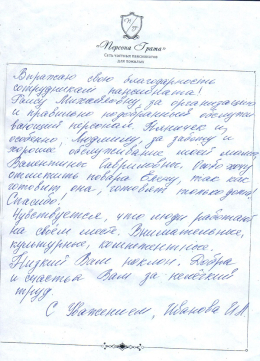 «Персона Грата»
Сеть частных пансионатов
для пожилых
Выражаю свою благодарность
сотрудникам пансионата!
Раису Михайловну за организацию
и правильно подобранный обслужи
вающий персонал.
особенно, Людмилу за заботу и
хорошее обслуживание моей мамы,
Валентины Гавриловны. Особо хочу
отметить повара Елену, так как
готовит она, готовят только дома!
Спасибо!
Чувствуется, что люди работают
на своём месте. Внимательные,
культурные, компетентные.
Низкий Вам поклон. Добра
и счастья Вам за нелёгкий
труд
С Уважением, Иванова И.